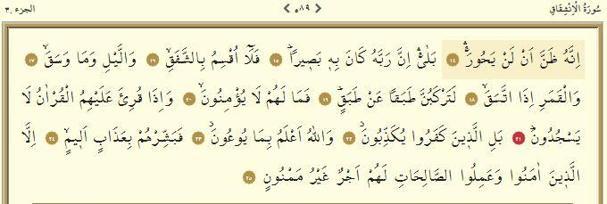 سُورَةُ الْاِنْشِقَاقِ ٥٨٩ الجزء ٣٠
اِنَّهُ ظَنَّ اَنْ لَنْ يَحُورَۚۛ ١٤ بَلٰىۚۛ اِنَّ رَبَّهُ كَانَ بِه۪ بَص۪يرًاۜ ١٥ فَلَٓا اُقْسِمُ بِالشَّفَقِۙ ١٦ وَالَّيْلِ وَمَا وَسَقَۙ ١٧
وَالْقَمَرِ اِذَا اتَّسَقَۙ ١٨ لَتَرْكَبُنَّ طَبَقًا عَنْ طَبَقٍۜ ١٩ فَمَا لَهُمْ لَا يُؤْمِنُونَۙ ٢٠ وَاِذَا قُرِئَ عَلَيْهِمُ الْقُرْاٰنُ لَا
يَسْجُدُونَۜ ٢١ بَلِ الَّذ۪ينَ كَفَرُوا يُكَذِّبُونَۘ ٢٢ وَاللّٰهُ اَعْلَمُ بِمَا يُوعُونَۘ ٢٣ فَبَشِّرْهُمْ بِعَذَابٍ اَل۪يمٍۙ ٢٤ اِلَّا
الَّذ۪ينَ اٰمَنُوا وَعَمِلُوا الصَّالِحَاتِ لَهُمْ اَجْرٌ غَيْرُ مَمْنُونٍ ٢٥